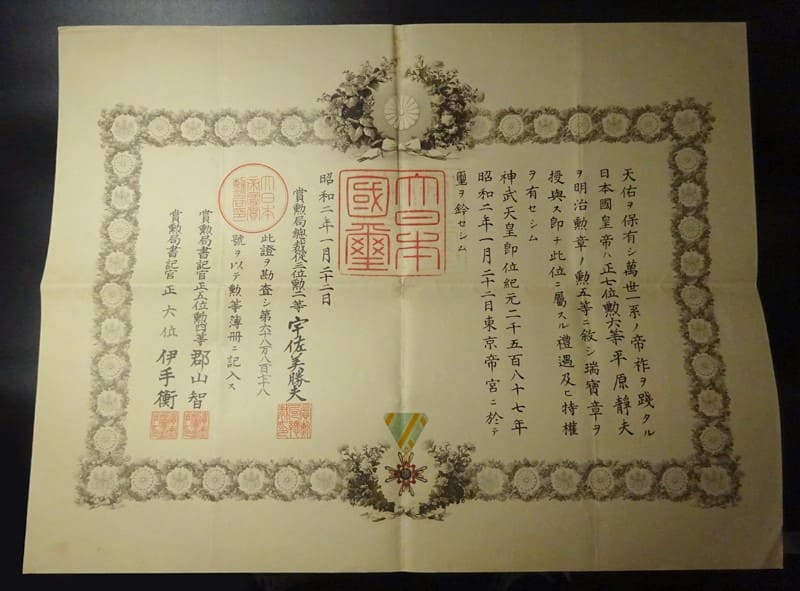 天佑ヲ保有シ萬世一系ノ帝祚ヲ踐タル
日本國皇帝ハ正七位勲六等平原靜夫
ヲ明治勲章ノ勲五等ニ敘シ瑞寶章ヲ
授與ス即チ此位ニ屬スル禮遇及ヒ特權
ヲ有セシム
神武天皇即位紀元二千五百八十七年
昭和二年一月二十二日東京帝宮ニ於テ
璽ヲ鈴セシム
大日本
國璽
昭和二年一月二十二日
賞勲局總裁從三位勲二等宇佐美勝夫
此證ヲ勘査シ第六八万八百七十八
號ヲ以テ勲等簿册ニ記入ス
大日本
賞勲局書記官正五位勲四等郡山智
賞勲局書記官正六位伊手衡